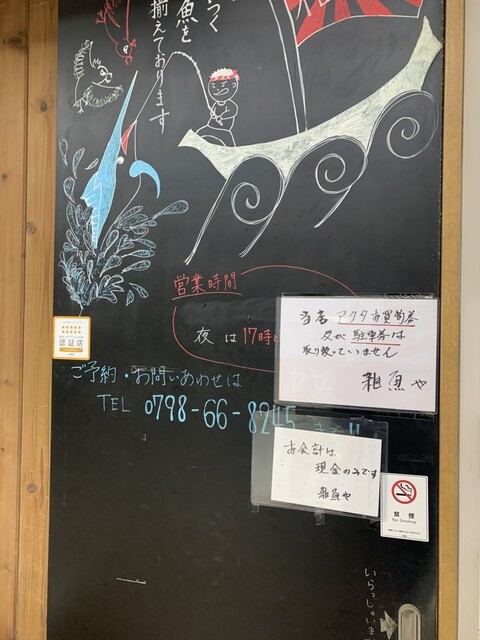 魚を
揃えております
営業時間
夜は17時
ご予約・お問いあわせは
TEL 0798-66-8245
当店 アクタお買物券
及び 駐車券は
取り扱っていません
雑魚や
お会計は
現金のみです
雑魚や
認証店
禁煙
No Smoking
いらっしゃいま